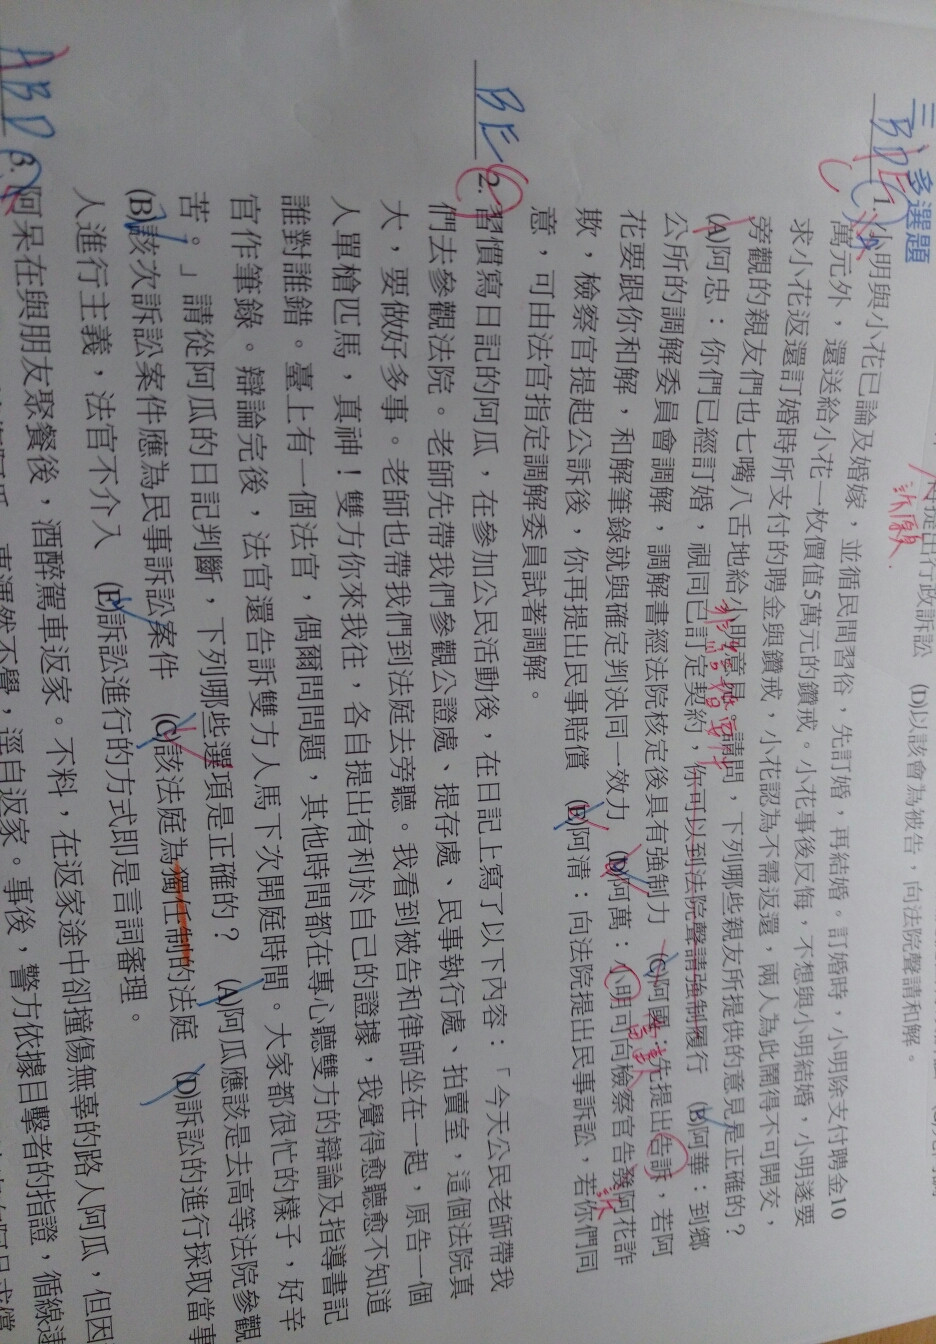 提出行政訴訟 (D)以該會為被告，向法院聲請和解。
訴願
三、多選題
BDE 1. 小明與小花已論及婚嫁，並循民間習俗，先訂婚，再結婚。訂婚時，小明除支付聘金10
萬元外，還送給小花一枚價值5萬元的鑽戒。小花事後反悔，不想與小明結婚，小明遂要
求小花返還訂婚時所支付的聘金與鑽戒，小花認為不需返還，兩人為此鬧得不可開交，
旁觀的親友們也七嘴八舌地給小明意見。請問，下列哪些親友所提供的意見是正確的？
(A)阿忠：你們已經訂婚，視同已訂定契約，你可以到法院聲請強制履行 (B)阿華：到鄉
公所的調解委員會調解，調解書經法院核定後具有強制力 (C)阿國：先提出告訴，若阿
花要跟你和解，和解筆錄就與確定判決同一效力 (D)阿萬：小明可向檢察官告發阿花詐
欺，檢察官提起公訴後，你再提出民事賠償 (E)阿清：向法院提出民事訴訟，若你們同
意，可由法官指定調解委員試著調解。
BE 2. 習慣寫日記的阿瓜，在參加公民活動後，在日記上寫了以下內容：「今天公民老師帶我
們去參觀法院。老師先帶我們參觀公證處、提存處、民事執行處、拍賣室，這個法院真
大，要做好多事。老師也帶我們到法庭去旁聽。我看到被告和律師坐在一起，原告一個
人單槍匹馬，真神！雙方你來我往，各自提出有利於自己的證據，我覺得愈聽愈不知道
誰對誰錯。臺上有一個法官，偶爾問問題，其他時間都在專心聽雙方的辯論及指導書記
官作筆錄。辯論完後，法官還告訴雙方人馬下次開庭時間。大家都很忙的樣子，好辛
苦。」請從阿瓜的日記判斷，下列哪些選項是正確的？ (A)阿瓜應該是去高等法院參觀
(B)該次訴訟案件應為民事訴訟案件 (C)該法庭為獨任制的法庭 (D)訴訟的進行採取當事
人進行主義，法官不介入 (E)訴訟進行的方式即是言詞審理。
ABD 3. 阿呆在與朋友聚餐後，酒醉駕車返家。不料，在返家途中卻撞傷無辜的路人阿瓜，但因
渾然不覺，逕自返家。事後，警方依據目擊者的指證，循線逮